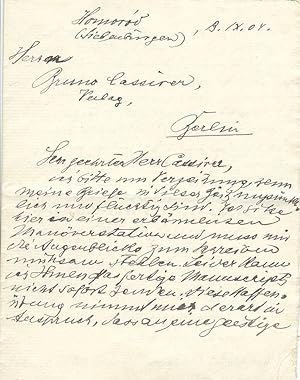 Homoród
(Siebenbürgen), 8.IX.04.
Herrn
Bruno Cassirer,
Verlag,
Berlin
Sehr geehrter Herr Cassirer,
ich bitte um Verzeihung, wenn
meine Briefe in dieser Zeit unpünkt-
lich und flüchtig sind. Ich sitze
hier in einer erbärmlichen
Manöverstation und muss mir
die Augenblicke zum Schreiben
mühsam stehlen. Leider kann
ich Ihnen das fertige Manuscript
nicht sofort senden. Diese Waffen-
übung nimmt mich derart in
Anspruch, dass an eine geistige